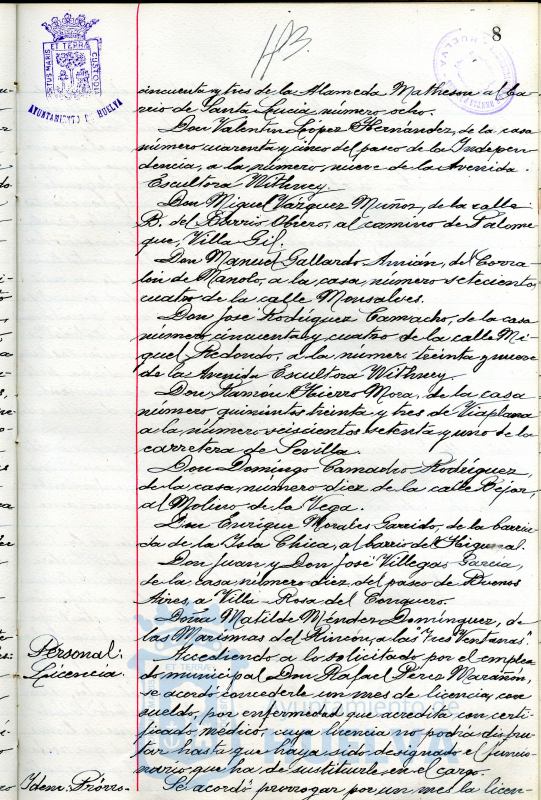 8
113.
SITUS MARIS ET TERRÆ CUSTODI
AYUNTAMIENTO DE HUELVA
cincuenta y tres de la Alameda Matheson al ba-
rrio de Santa Lucia, número ocho.
Don Valentín López Hernández, de la casa
número cuarenta y cinco del paseo de la Indepen-
dencia, a la número nueve de la Avenida
Escultora Withney.
Don Miguel Vázquez Muñoz, de la calle
B. del Barrio Obrero, al camino de Palome
que, Villa Gil.
Don Manuel Gallardo Amián, de Corra-
lón de Manolo, a la casa número setecientos
cuatro de la calle Monsalves.
Don José Rodríguez Camacho, de la casa
número cincuenta y cuatro de la calle Mi-
guel Redondo, a la número treinta y nueve
de la Avenida Escultora Withney.
Don Ramón Hierro Mora, de la casa
número quinientos treinta y tres de Viaplana
a la número seiscientos setenta y uno de la
carretera de Sevilla.
Don Domingo Camacho Rodríguez,
de la casa número diez de la calle Béjar,
al Molino de la Vega.
Don Enrique Morales Garrido, de la barria
da de la Isla Chica, al barrio del Higueral.
Don Juan y Don José Villegas García,
de la casa número diez del paseo de Buenos
Aires, a Villa Rosa del Conquero.
Doña Matilde Méndez Domínguez, de
las Marismas del Rincón, a las "Tres Ventanas".
Personal: Accediendo a lo solicitado por el emplea
Licencia. do municipal Don Rafael Pérez Marañón,
se acordó concederle un mes de licencia, con
sueldo, por enfermedad que acredita con certi-
ficado médico, cuya licencia no podrá disfru-
tar hasta que haya sido designado el funcio-
nario que ha de sustituirle en el cargo.
Idem: Prórro- Se acordó prorrogar por un mes la licen-
ET TERRÆ
Ayuntamiento de
HUELVA